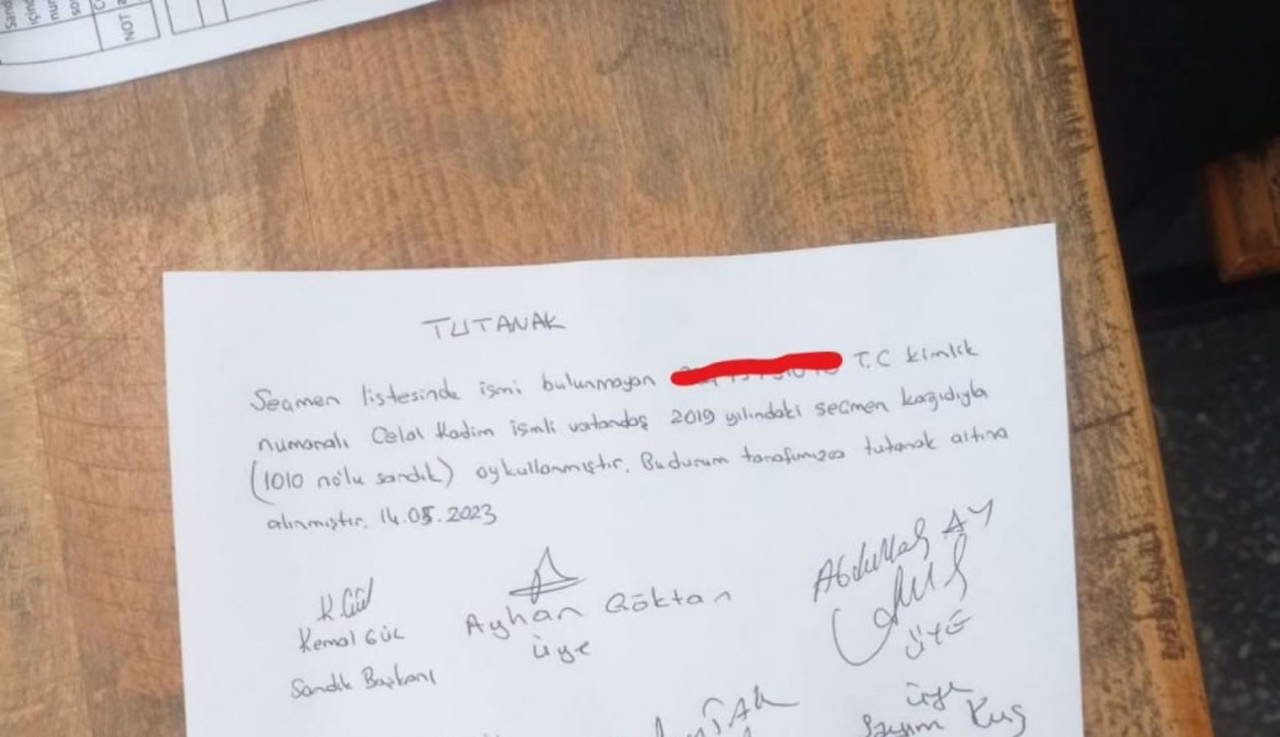 NOT
TUTANAK
Seçmen listesinde ismi bulunmayan T.C kimlik
numaralı Celal Kadim isimli vatandaş 2019 yılındaki seçmen kağıdıyla
(1010 no'lu sandık) oy kullanmıştır. Bu durum tarafımızca tutanak altına
alınmıştır. 14.05.2023
K.Gül
Kemal GÜL
Sandık Başkanı
Ayhan Göktan
üye
Abdullah AY
ÜYE
üye
Kuş